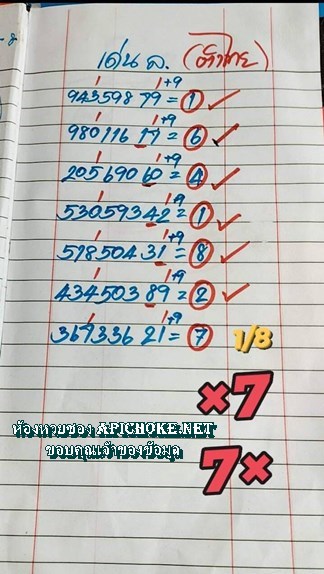 เด่น ล. (ตัวไทย)
943598 79 = 1
+9
980116 17 = 6
+9
2056906 0 = 4
+9
5305934 2 = 1
+9
5185043 1 = 8
+9
4345038 9 = 2
+9
367336 21 = 7
+9
1/8
×7
7×
ห้องหวยซอง APICHOKE.NET
ขอบคุณเจ้าของข้อมูล